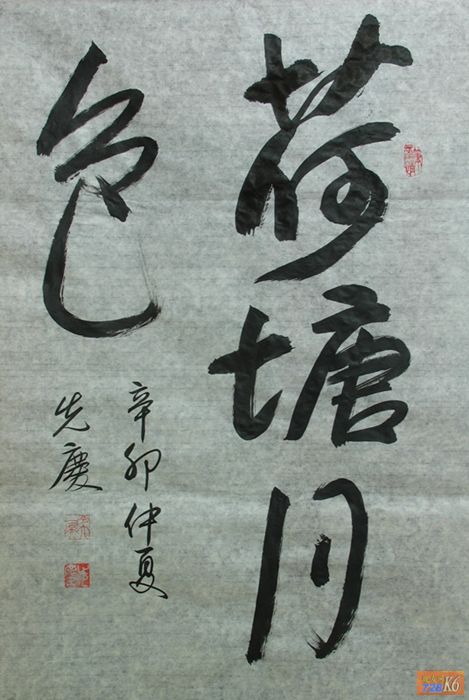 荷塘月
色
辛卯仲夏
先慶
K6